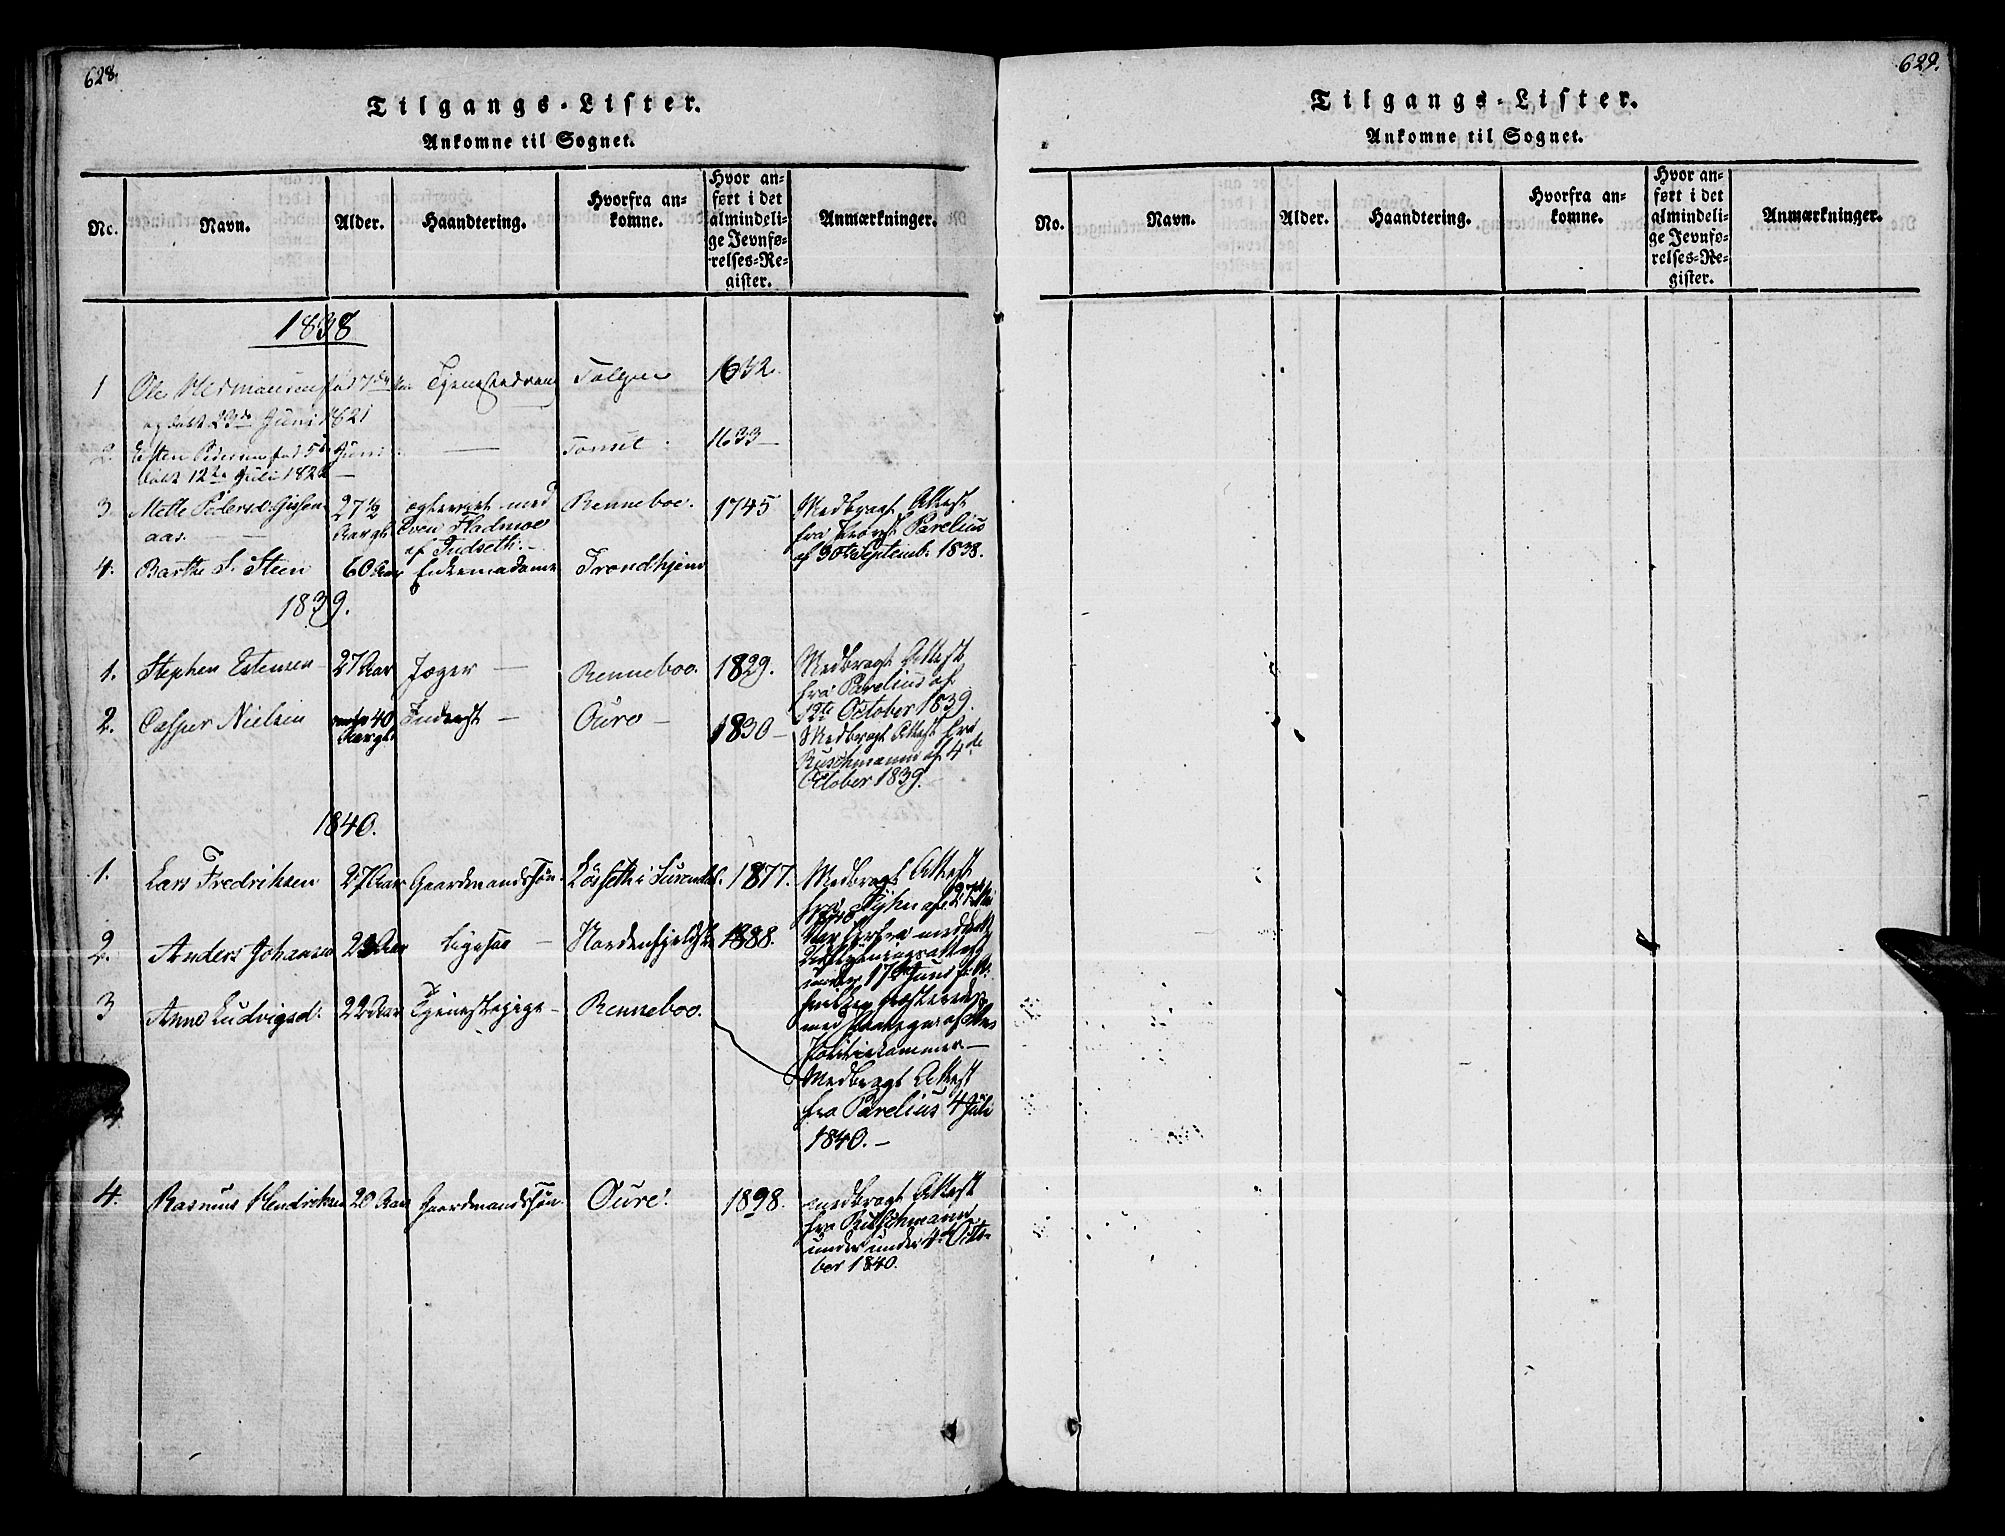 628.
Tilgangs-Lister.
Ankomne til Sognet.
No. Navn. Alder. Haandtering. Hvorfra ankomne. Hvor anført i det almindelige Jevnførelses-Register. Anmærkninger.
1838
1 Ole Hermansen fød 7de Tjenestedreng Tolgen 1632.
og døbt 23de Juni 1821
2. Esten Pedersen fød 5te Juni — 1633 —
døbt 12te Juli 182
3. Mette Pedersd. 27½ egteviet med Renneboe. 1745 Medbragt Attest
aas. — Aargl. Sven Fladmoe fra Provst Parelius
af Indseth. — af 30te Septemb. 1838.
4. Barthe S. Steen 60 Aar Enkemadame Trondhjem
1839.
1. Stephen Estensen 27 Aar Jæger — Renneboe. 1829. Medbragt Attest
fra Parelius af
12te October 1839.
2. Casper Nielsen 40 Inderst — Oure — 1830 — Medbragt Attest fra
Aargl. Buschmann af 4de
October 1839.
1840.
1. Lars Fredriksen 27 Aar Gaardmandssøn. i Surendal. 1877. Medbragt Attest
2. Anders Johansen Aar ligesaa — Nordenfjeldsk 1888.
3 Anne Ludvigsd. 22 Aar Tjenestepige — Renneboe.
Politiekammer —
Medbragt Attest
fra Parelius 4 Juli
1840. —
4. Rasmus Hendriksen 20 Aar Gaardmandssøn. Oure. 1898. medbragt Attest
fra Buschmann
under under 4de Octo-
ber 1840.
629.
Tilgangs-Lister.
Ankomne til Sognet.
No. Navn. Alder. Haandtering. Hvorfra ankomne. Hvor anført i det almindelige Jevnførelses-Register. Anmærkninger.